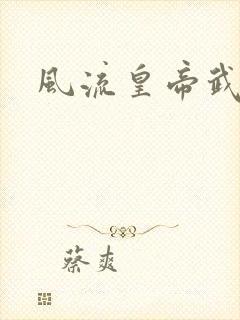 風流皇帝武
蔡爽